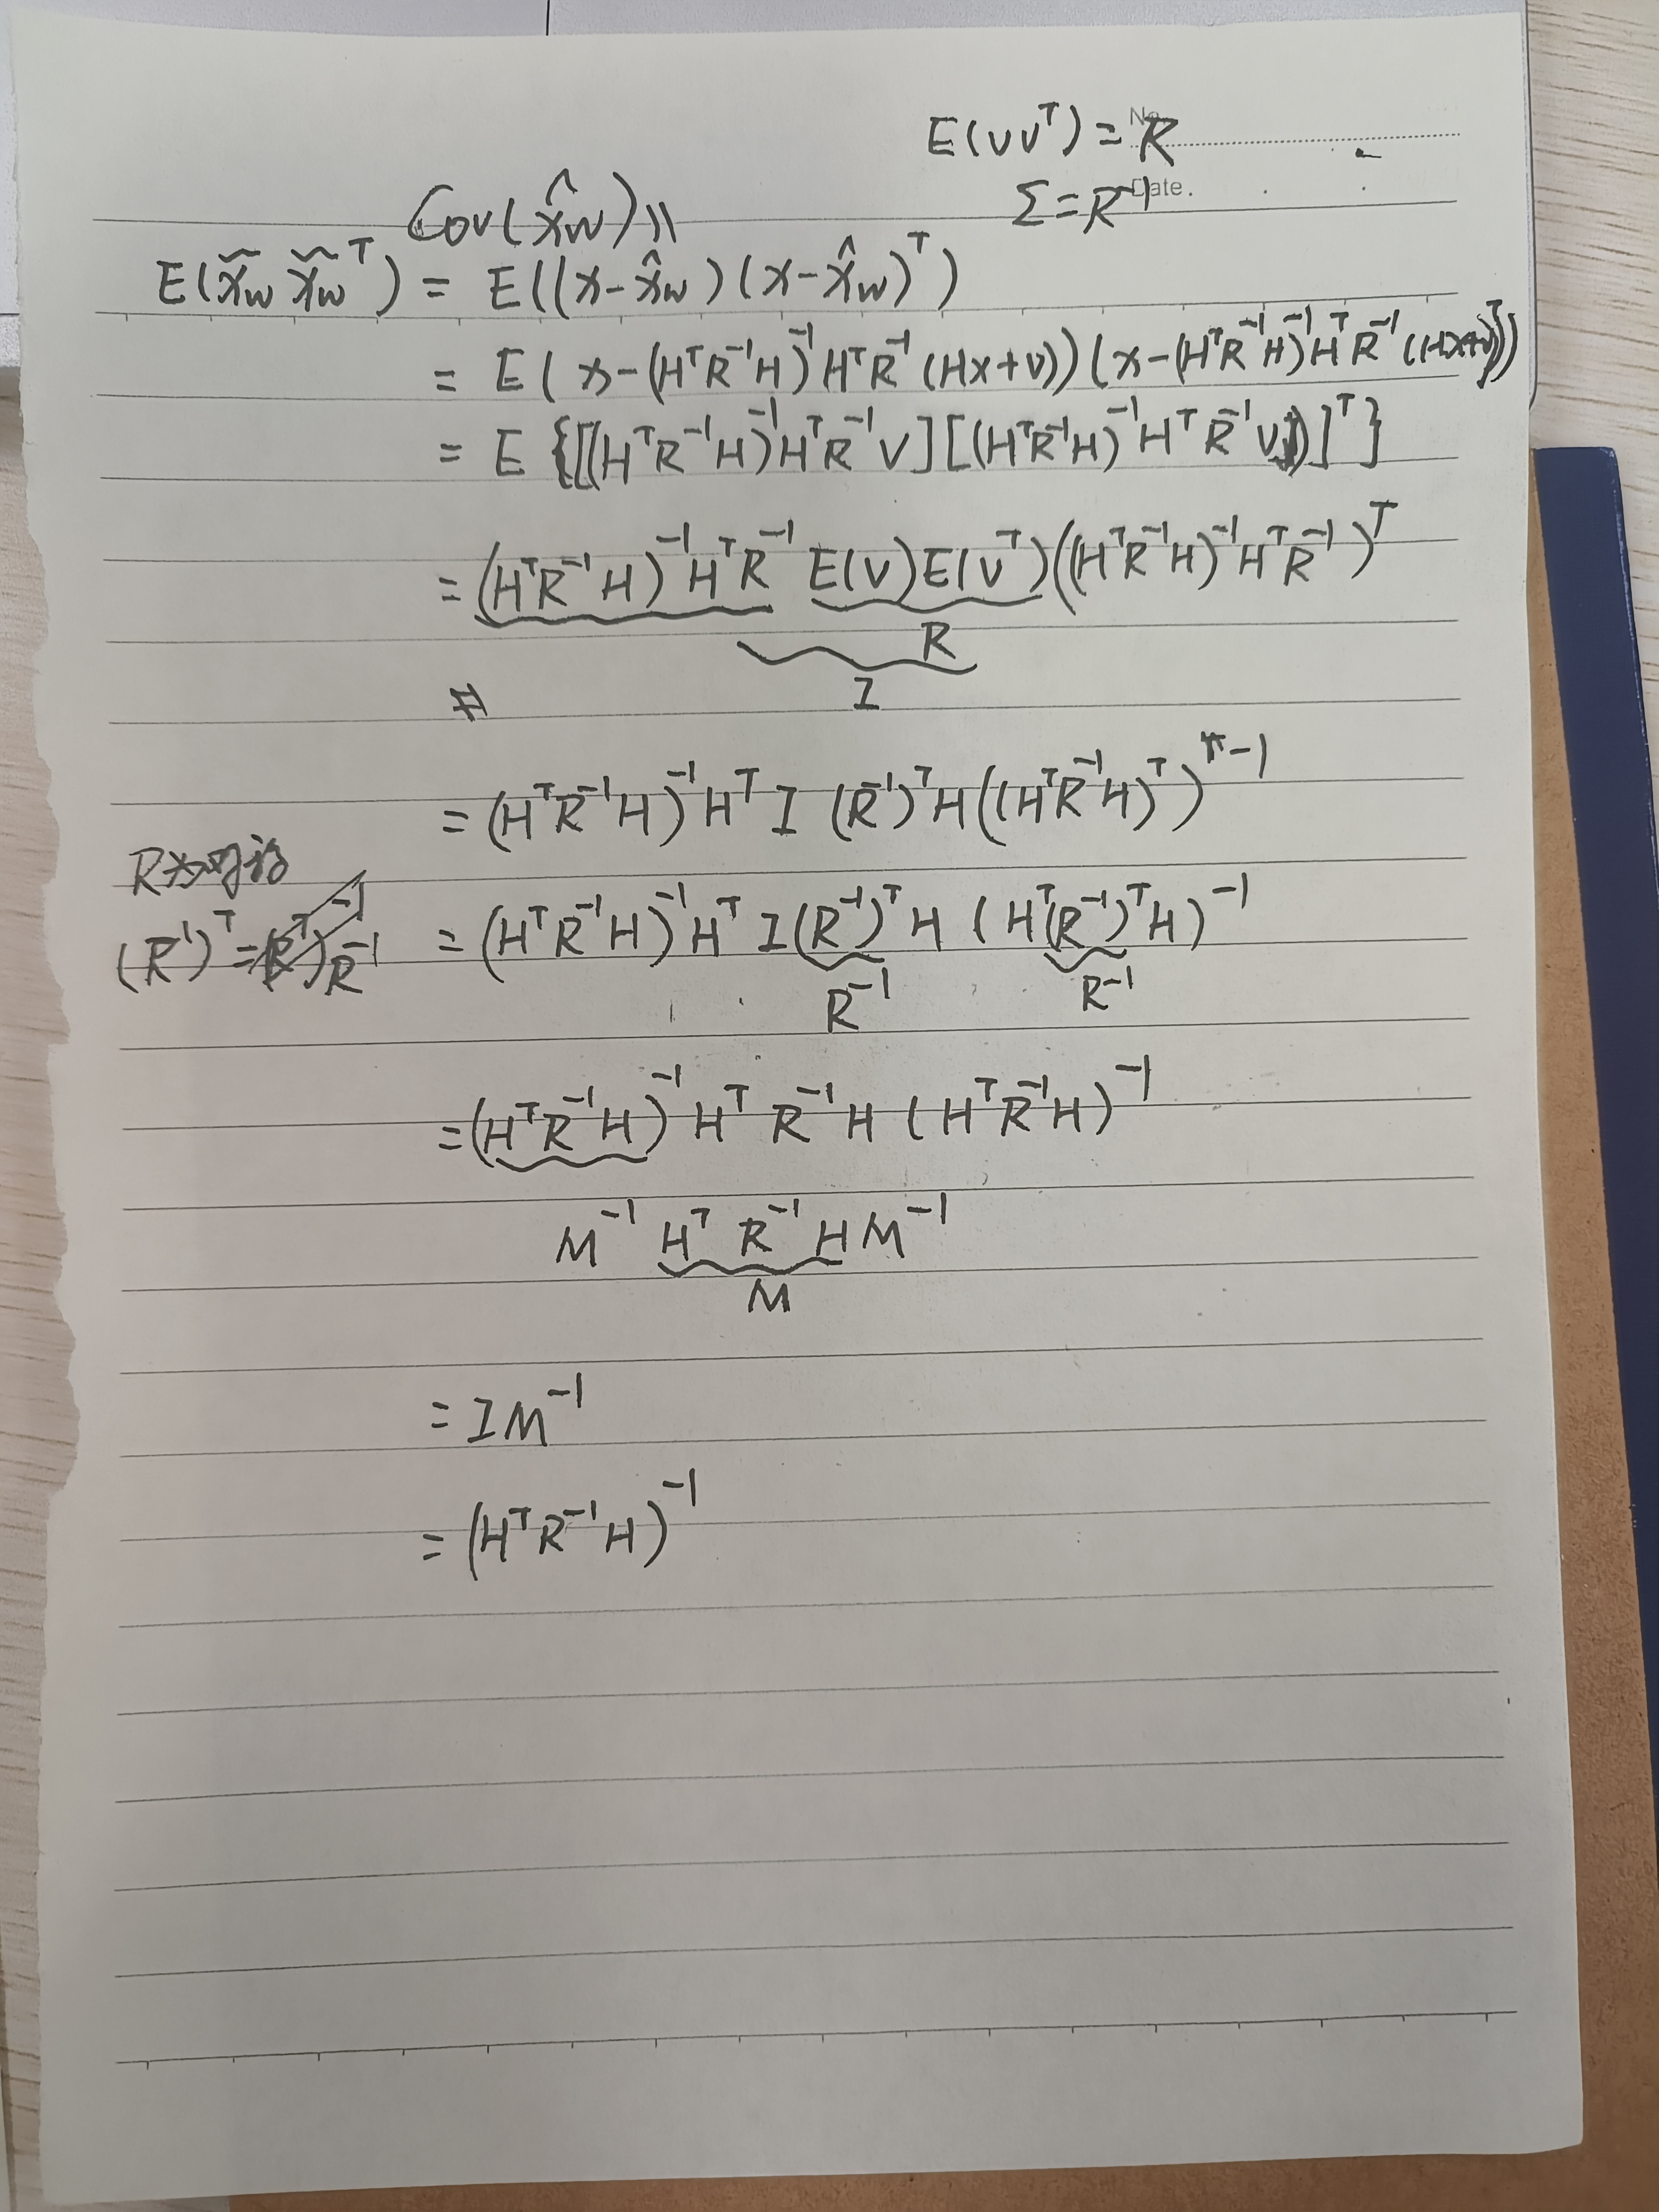 No.
Date.
E(VVᵀ) = R
Σ = R⁻¹
Cov(x̂w) \\
E(x̃w x̃wᵀ) = E((x-x̂w)(x-x̂w)ᵀ)
= E(x-(HᵀR⁻¹H)⁻¹HᵀR⁻¹(Hx+V))(x-(HᵀR⁻¹H)⁻¹HᵀR⁻¹(Hx+V))ᵀ
= E{[(HᵀR⁻¹H)⁻¹HᵀR⁻¹V][(HᵀR⁻¹H)⁻¹HᵀR⁻¹V)]ᵀ}
= (HᵀR⁻¹H)⁻¹HᵀR⁻¹ E(V)E(Vᵀ)((HᵀR⁻¹H)⁻¹HᵀR⁻¹)ᵀ
R
I
= (HᵀR⁻¹H)⁻¹Hᵀ I (R⁻¹)ᵀH((HᵀR⁻¹H)ᵀ)⁻¹
R为
(R⁻¹)ᵀ = R⁻¹
= (HᵀR⁻¹H)⁻¹Hᵀ I(R⁻¹)ᵀH (Hᵀ(R⁻¹)ᵀH)⁻¹
R⁻¹ R⁻¹
= (HᵀR⁻¹H)⁻¹Hᵀ R⁻¹H (HᵀR⁻¹H)⁻¹
M⁻¹ Hᵀ R⁻¹ H M⁻¹
M
= IM⁻¹
= (HᵀR⁻¹H)⁻¹